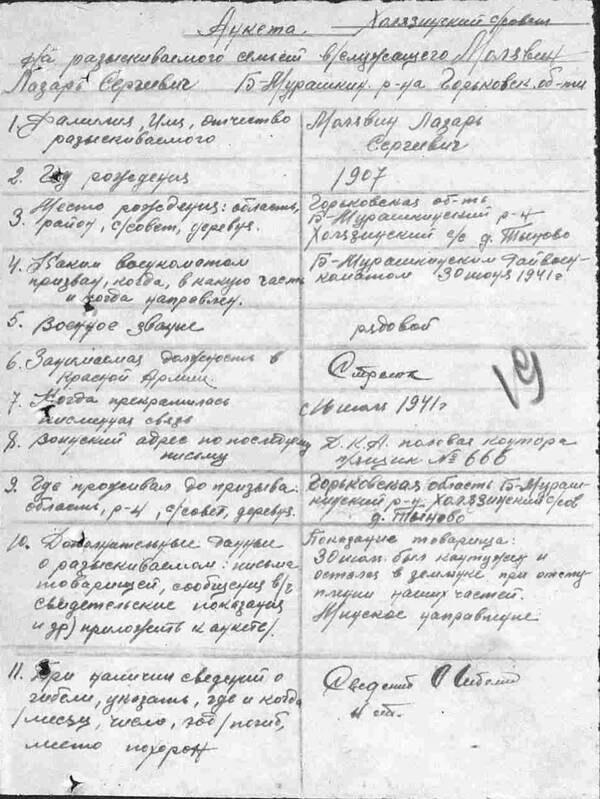 Анкета. Холязинский с/совет
на разыскиваемого семьей в/служащего Молявин
Лазарь Сергиевич Б-Мурашкин. р-на Горьковск. об-ти
1. Фамилия, Имя, отчество
разыскиваемого
Молявин Лазарь
Сергиевич
2. Год рождения
1907
3. Место рождения: область,
район, с/совет, деревня.
Горьковская об-ть
Б-Мурашкинский р-н
Холязинский с/с д. Тыново
4. Каким военкоматом
призван, когда, в какую часть
и когда направлен.
Б-Мурашкинским Райвоен-
коматом 1941 г
5. Военное звание
рядовой
6. Занимаемая должность в
Красной Армии.
Стрелок
7. Когда прекратилась
письменная связь
1941 г
8. Воинский адрес по последнему
письму
Д.К.А. полевая контора
п/ящик № 666
9. Где проживал до призыва:
область, р-н, с/совет, деревня.
Горьковская область Б-Мураш-
кинский р-н Холязинский с/сов
д. Тыново
10. Дополнительные данные
о разыскиваемом: письма
товарищей, сообщения в/ч
свидетельские показания
и др) приложить к анкете/.
Показание товарища:
был контужен и
остался в землянке при отсту
плении наших частей.
Минское направление
11. При наличии сведений о
гибели, указать, где и когда
/месяц, число, год/ погиб,
место похорон
Сведений
19